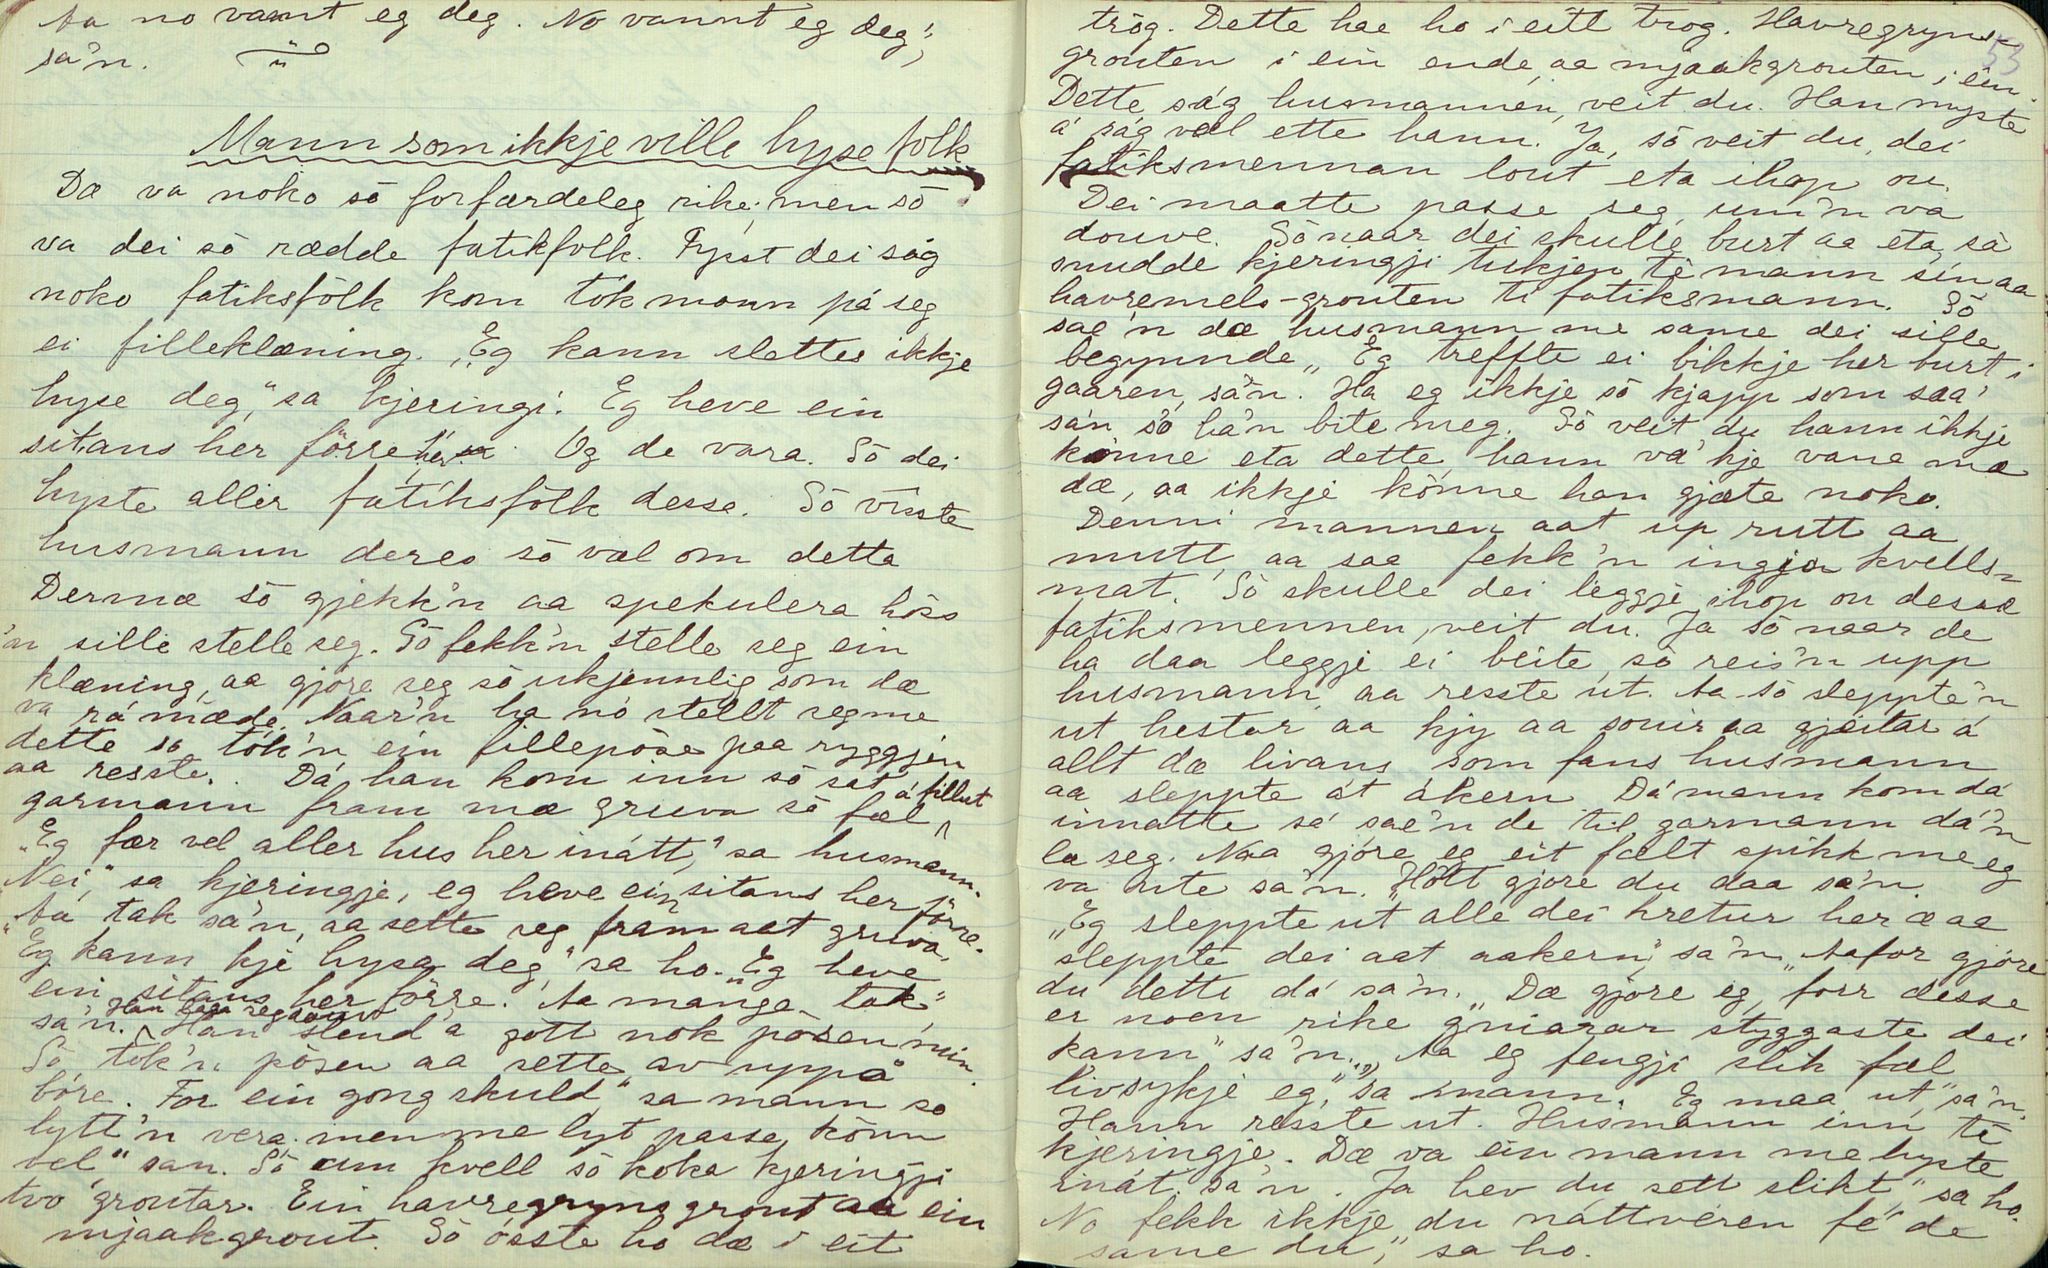 Aa no vannt eg deg. No vannt eg deg",
sa'n.
Mann som ikkje ville hyse folk
Dæ va noko sö forfærdeleg rike, men sö
va dei sö rædde fatikfolk. Fyst dei såg
noko fatiksfölk kom tok mann på seg
ei filleklæning. „Eg kann slettes ikkje
hyse deg," sa kjeringi. Eg heve ein
sitans her förre her sa. Og de vara. Sö dei
hyste aller fatiksfölk desse. Sö visste
husmann deres sö væl om detta
Dermæ sö gjekk'n aa spekulera höss
'an sille stelle seg. Sö fekk'n stelle seg ein
klæning, aa gjøre seg sö ukjennlig som dæ
va rå mæde. Naar'n ha no stellt seg me
dette so tok'n ein fillepöse paa ryggjen
aa resste. Då han kom inn sö sat å fillut
garmann fram mæ gruva sö fæl
„Eg fær vel aller hus her inått," sa husmann.
Nei," sa kjeringje, eg heve ein sitans her förre.
„Aa tak sa'n, aa sette seg fram aat gruva.
Eg kann kje hysa deg," sa ho. „Eg heve
ein sitans her förre. Aa mange tak"
sa'n. Han stend'a gott nok pösen min.
Sö tok'n pösen aa sette av uppå
böre. For ein gong skuld," sa mann so
lytt'n vera. men me lyt passe könn
vel," san. Sö um kvell sö koka kjeringji
tvo groutar. Ein havregrynsgrout aa ein
mjaakgrout. Sö össte ho dæ i eit
53
trög. Dette hae ho i eitt trog. Havregryns-
grouten i ein ende aa mjaakgrouten i ein.
Dette såg husmannen, veit du. Han myste
å såg væl ette hann. Ja, sö veit du, dei
fatiksmennan lout eta ihop ou.
Dei maatte passe seg, um'n va
douve. Sö naar dei skulle burt aa eta, så
snudde kjeringji tukjen te mann sin aa
havremels-grouten ti fatiksmann. Sö
sae'n dæ husmann me same dei sille
begynnde „Eg treffte ei bikkje her burt i
gaaren, sa'n. Ha eg ikkje sö kjapp som saa,
sa'n sö ha'n bite meg. Sö veit du hann ikkje
könne eta dette, hann va' kje vane mæ
dæ, aa ikkje könne han gjæte noko.
Denni mannen aat up rutt aa
mutt, aa saa fekk'n ingja kvells-
mat. Sö skulle dei leggje ihop ou desse
fatiksmennen, veit du. Ja sö naar de
ha daa leggje ei beite, sö reis'n upp
husmann, aa resste ut. Aa sö sleppte'n
ut hestar aa kjy aa souir aa gjeitar å
allt dæ livans som fans husmann
aa sleppte åt åkern. Då mann kom då
innatte så sae'n de til garmann då'n
la seg. Naa gjöre eg eit fælt spikk me eg
va ute sa'n. „Hött gjöre du daa sa'n.
„Eg sleppte ut alle dei kretur her æ aa
sleppte dei aat aakern," sa'n. „Aafor gjöre
du dette då sa'n. „Dæ gjöre eg, forr desse
er noen rike gniarar styggaste dei
kann" sa'n. „Aa eg fengji slik fæl
livsykje eg," sa mann. Eg maa ut," sa'n.
Hann resste ut. Husmann inn te
kjæringje. Dæ va ein mann me hyste
inåt. sa'n. Ja hev du sett slikt," sa ho.
No fekk ikkje du nåttveren fe' de
same du," sa ho.